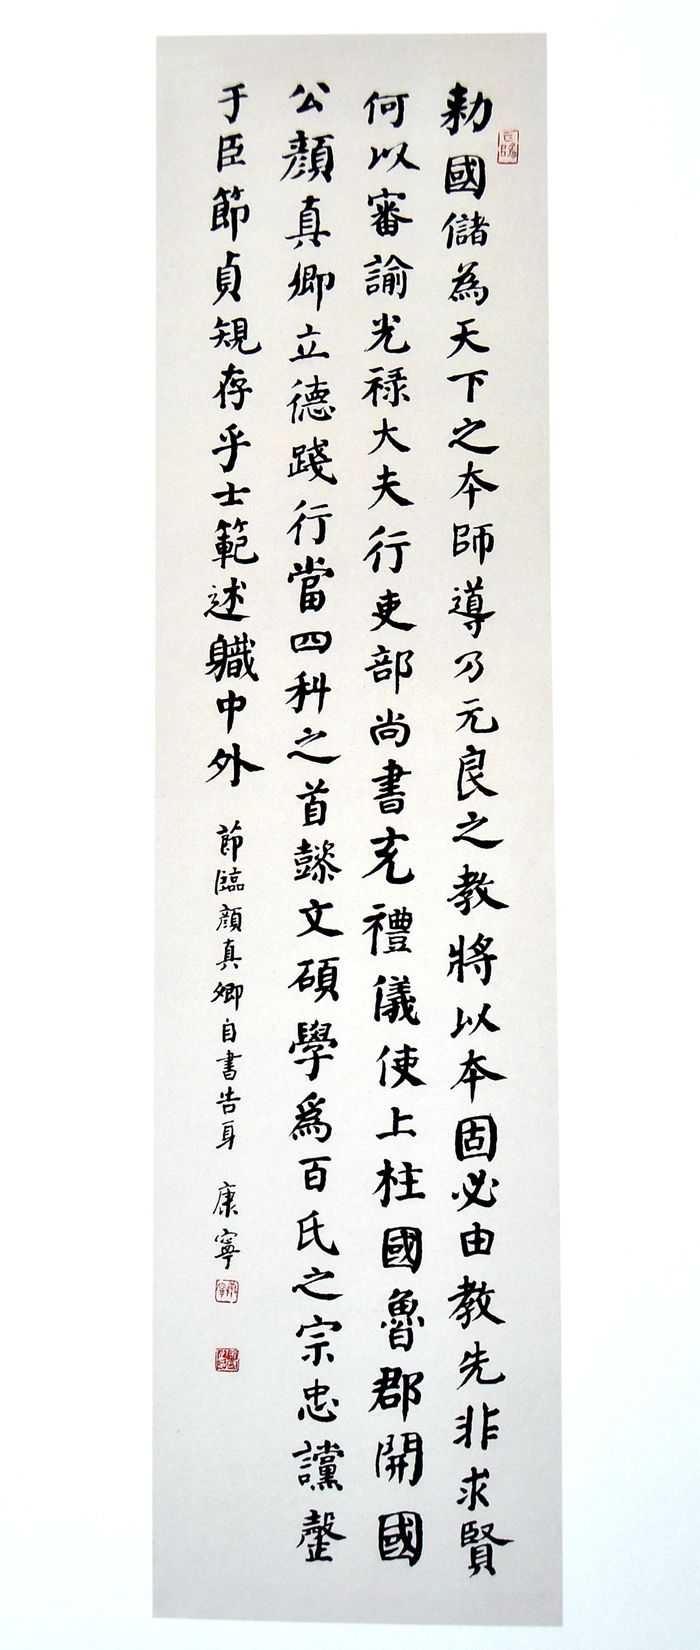 勅國儲為天下之本師導乃元良之教將以本固必由教先非求賢
何以審諭光禄大夫行吏部尚書充禮儀使上柱國魯郡開國
公顏真卿立德踐行當四科之首懿文碩學為百氏之宗忠讜罄
于臣節貞規存乎士範述職中外
節臨顏真卿自書告身 康寧